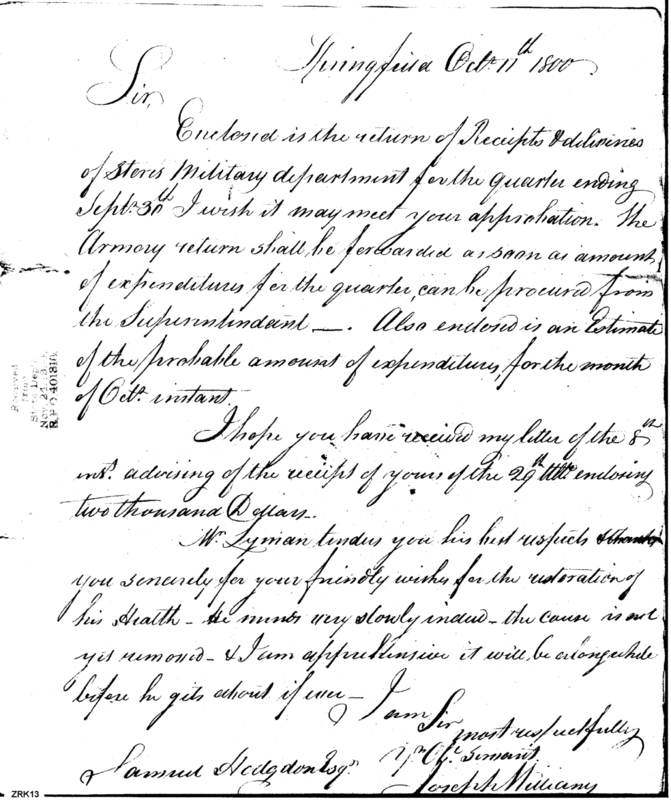 Springfield Octr. 11th 1800.
Sir,
Enclosed is the return of Receipts & deliveries
of Stores Military department for the quarter ending
Septr. 30th I wish it may meet your approbation. The
Armory return shall be forwarded as soon as amount
of expenditures for the quarter, can be procured from
the Superintendant —. Also enclosed is an Estimate
of the probable amount of expenditures, for the month
of Octr. instant.
I hope you have received my letter of the 8th
inst. advising of the receipt of yours of the 29th Ulto. enclosing
two thousand Dollars.
Mr. Lyman tenders you his best respects & thanks
you sincerely for your friendly wishes for the restoration of
his Health - He mends very slowly indeed - the cause is not
yet removed - & I am apprehensive it will be a long while
before he gets about if ever -
I am Sir
most respectfully
Yr. Obt. Servant
Samuel Hodgdon Esqr.
Joseph Williams
Received
from
State Dept.
Nov 24,
R.P.O. 401810
ZRK13